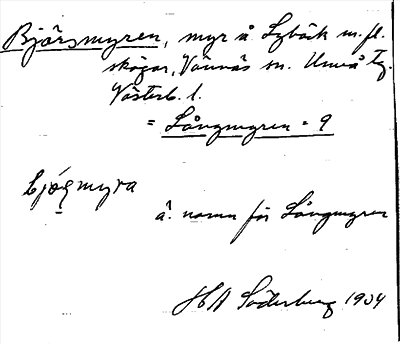 Björsmyren, myr å Lybäck m. fl.
skogar, Vännäs sn. Umeå tg.
Västerb. l.
= Långmyren - 9
bjǫ́ṣmyra
a. namn för Långmyren
H A Söderberg 1934